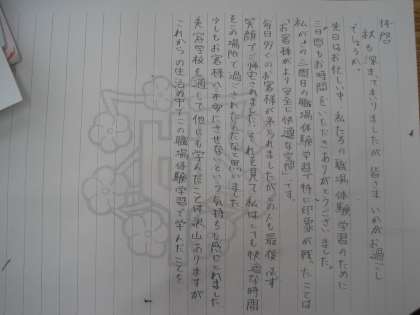 拝啓
秋も深まってまいりましたが、皆さま、いかがお過ごし
でしょうか。
先日はお忙しい中、私たちの職場体験学習のために
三日間もお時間をいただきありがとうございました。
私がこの三日間の職場体験学習で特に印象が残ったことは
「お客様がより安全に快適な空間」です。
毎日多くのお客様が来られましたがどの人も最後は
笑顔でご帰宅されました。それを見て私はとても快適な時間
をこの場所で過ごされたんだなと思いました
少しもお客様へ不安にさせないという気持ちも感じとれました。
学校を通して他にも学んだことは沢山ありますが
これからの生活の中でこの職場体験学習で学んだことを